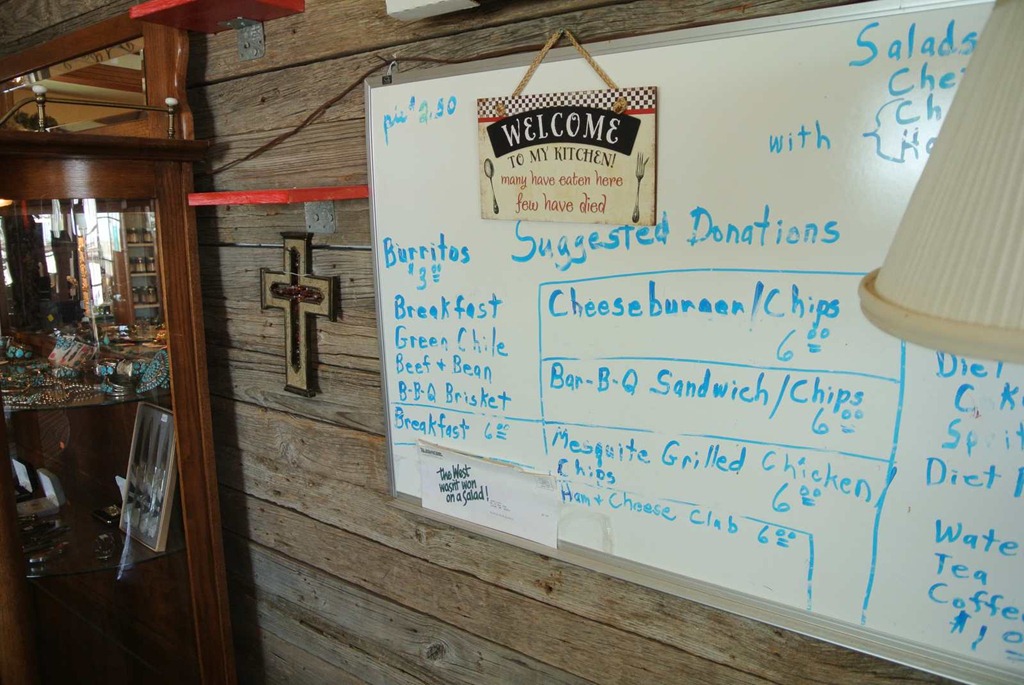 pie $2.50
WELCOME
TO MY KITCHEN!
many have eaten here
few have died
Salads
Che
with
Ch
Suggested Donations
Burritos
$3.00
Breakfast
Green Chile
Beef + Bean
B-B-Q Brisket
Breakfast 6.00
Cheeseburger/Chips
6.00
Bar-B-Q Sandwich/Chips
6.00
Mesquite Grilled Chicken
Chips 6.00
Ham + Cheese Club 6.00
the West
wasn't won
on a salad!
Diet
Sprit
Diet
Wate
Tea
Coffe
$1.0